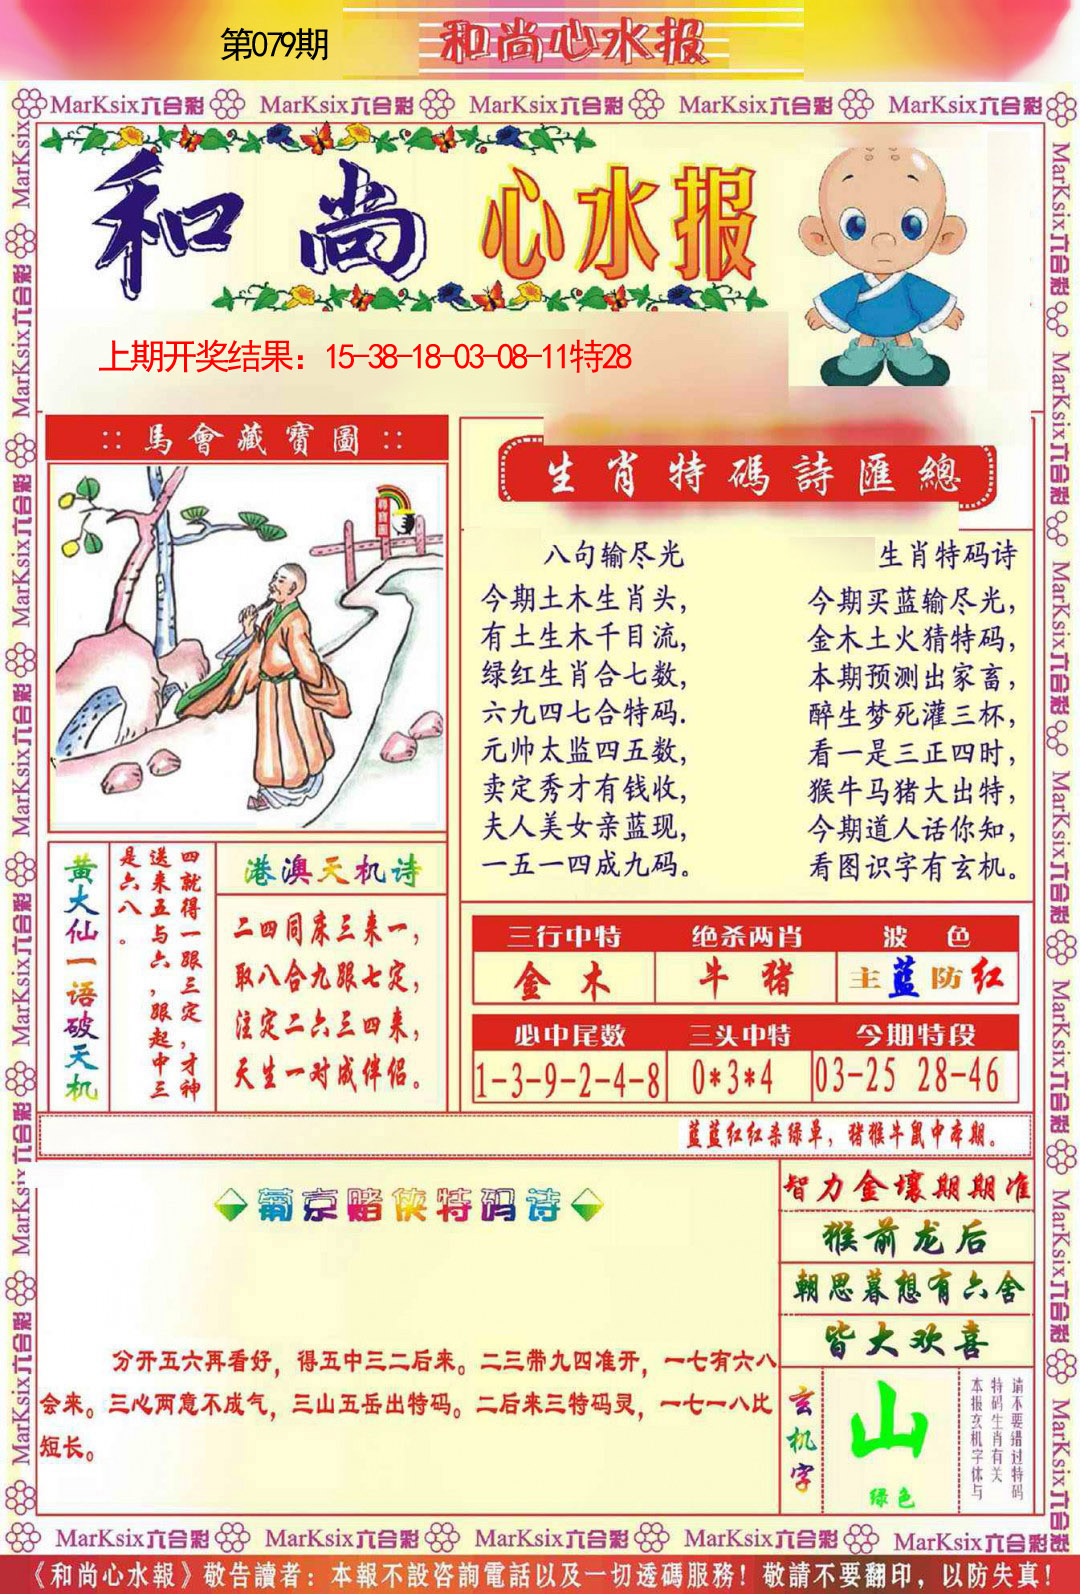 第079期
和尚心水报
MarKsix六合彩 MarKsix六合彩 MarKsix六合彩 MarKsix六合彩 MarKsix六合彩
和尚心水报
上期开奖结果：15-38-18-03-08-11特28
馬會藏寶圖
生肖特碼詩匯總
八句输尽光
今期土木生肖头，
有土生木千目流，
绿红生肖合七数，
六九四七合特码.
元帅太监四五数，
卖定秀才有钱收，
夫人美女亲蓝现，
一五一四成九码。
生肖特码诗
今期买蓝输尽光，
金木土火猜特码，
本期预测出家畜，
醉生梦死灌三杯，
看一是三正四时，
猴牛马猪大出特，
今期道人话你知，
看图识字有玄机。
黄大仙一语破天机
四就得一跟三定，才神
送来五与六，跟起中三
是六八。
港澳天机诗
二四同床三来一，
取八合九跟七定，
注定二六三四来，
天生一对成伴侣。
三行中特 绝杀两肖 波色
金木 牛猪 主蓝防红
必中尾数 三头中特 今期特段
1-3-9-2-4-8 0*3*4 03-25 28-46
蓝蓝红红杀绿单，猪猴牛鼠中本期。
葡京赌侠特码诗
分开五六再看好，得五中三二后来。二三带九四准开，一七有六八
会来。三心两意不成气，三山五岳出特码。二后来三特码灵，一七一八比
短长。
智力金壤期期准
猴前龙后
朝思暮想有六舍
皆大欢喜
玄机字
山
绿色
请不要错过特码
特码生肖有关
本报玄机字体与
MarKsix六合彩 MarKsix六合彩 MarKsix六合彩 MarKsix六合彩 MarKsix六合彩
《和尚心水報》敬告讀者：本報不設咨詢電話以及一切透碼服務！敬請不要翻印，以防失真！